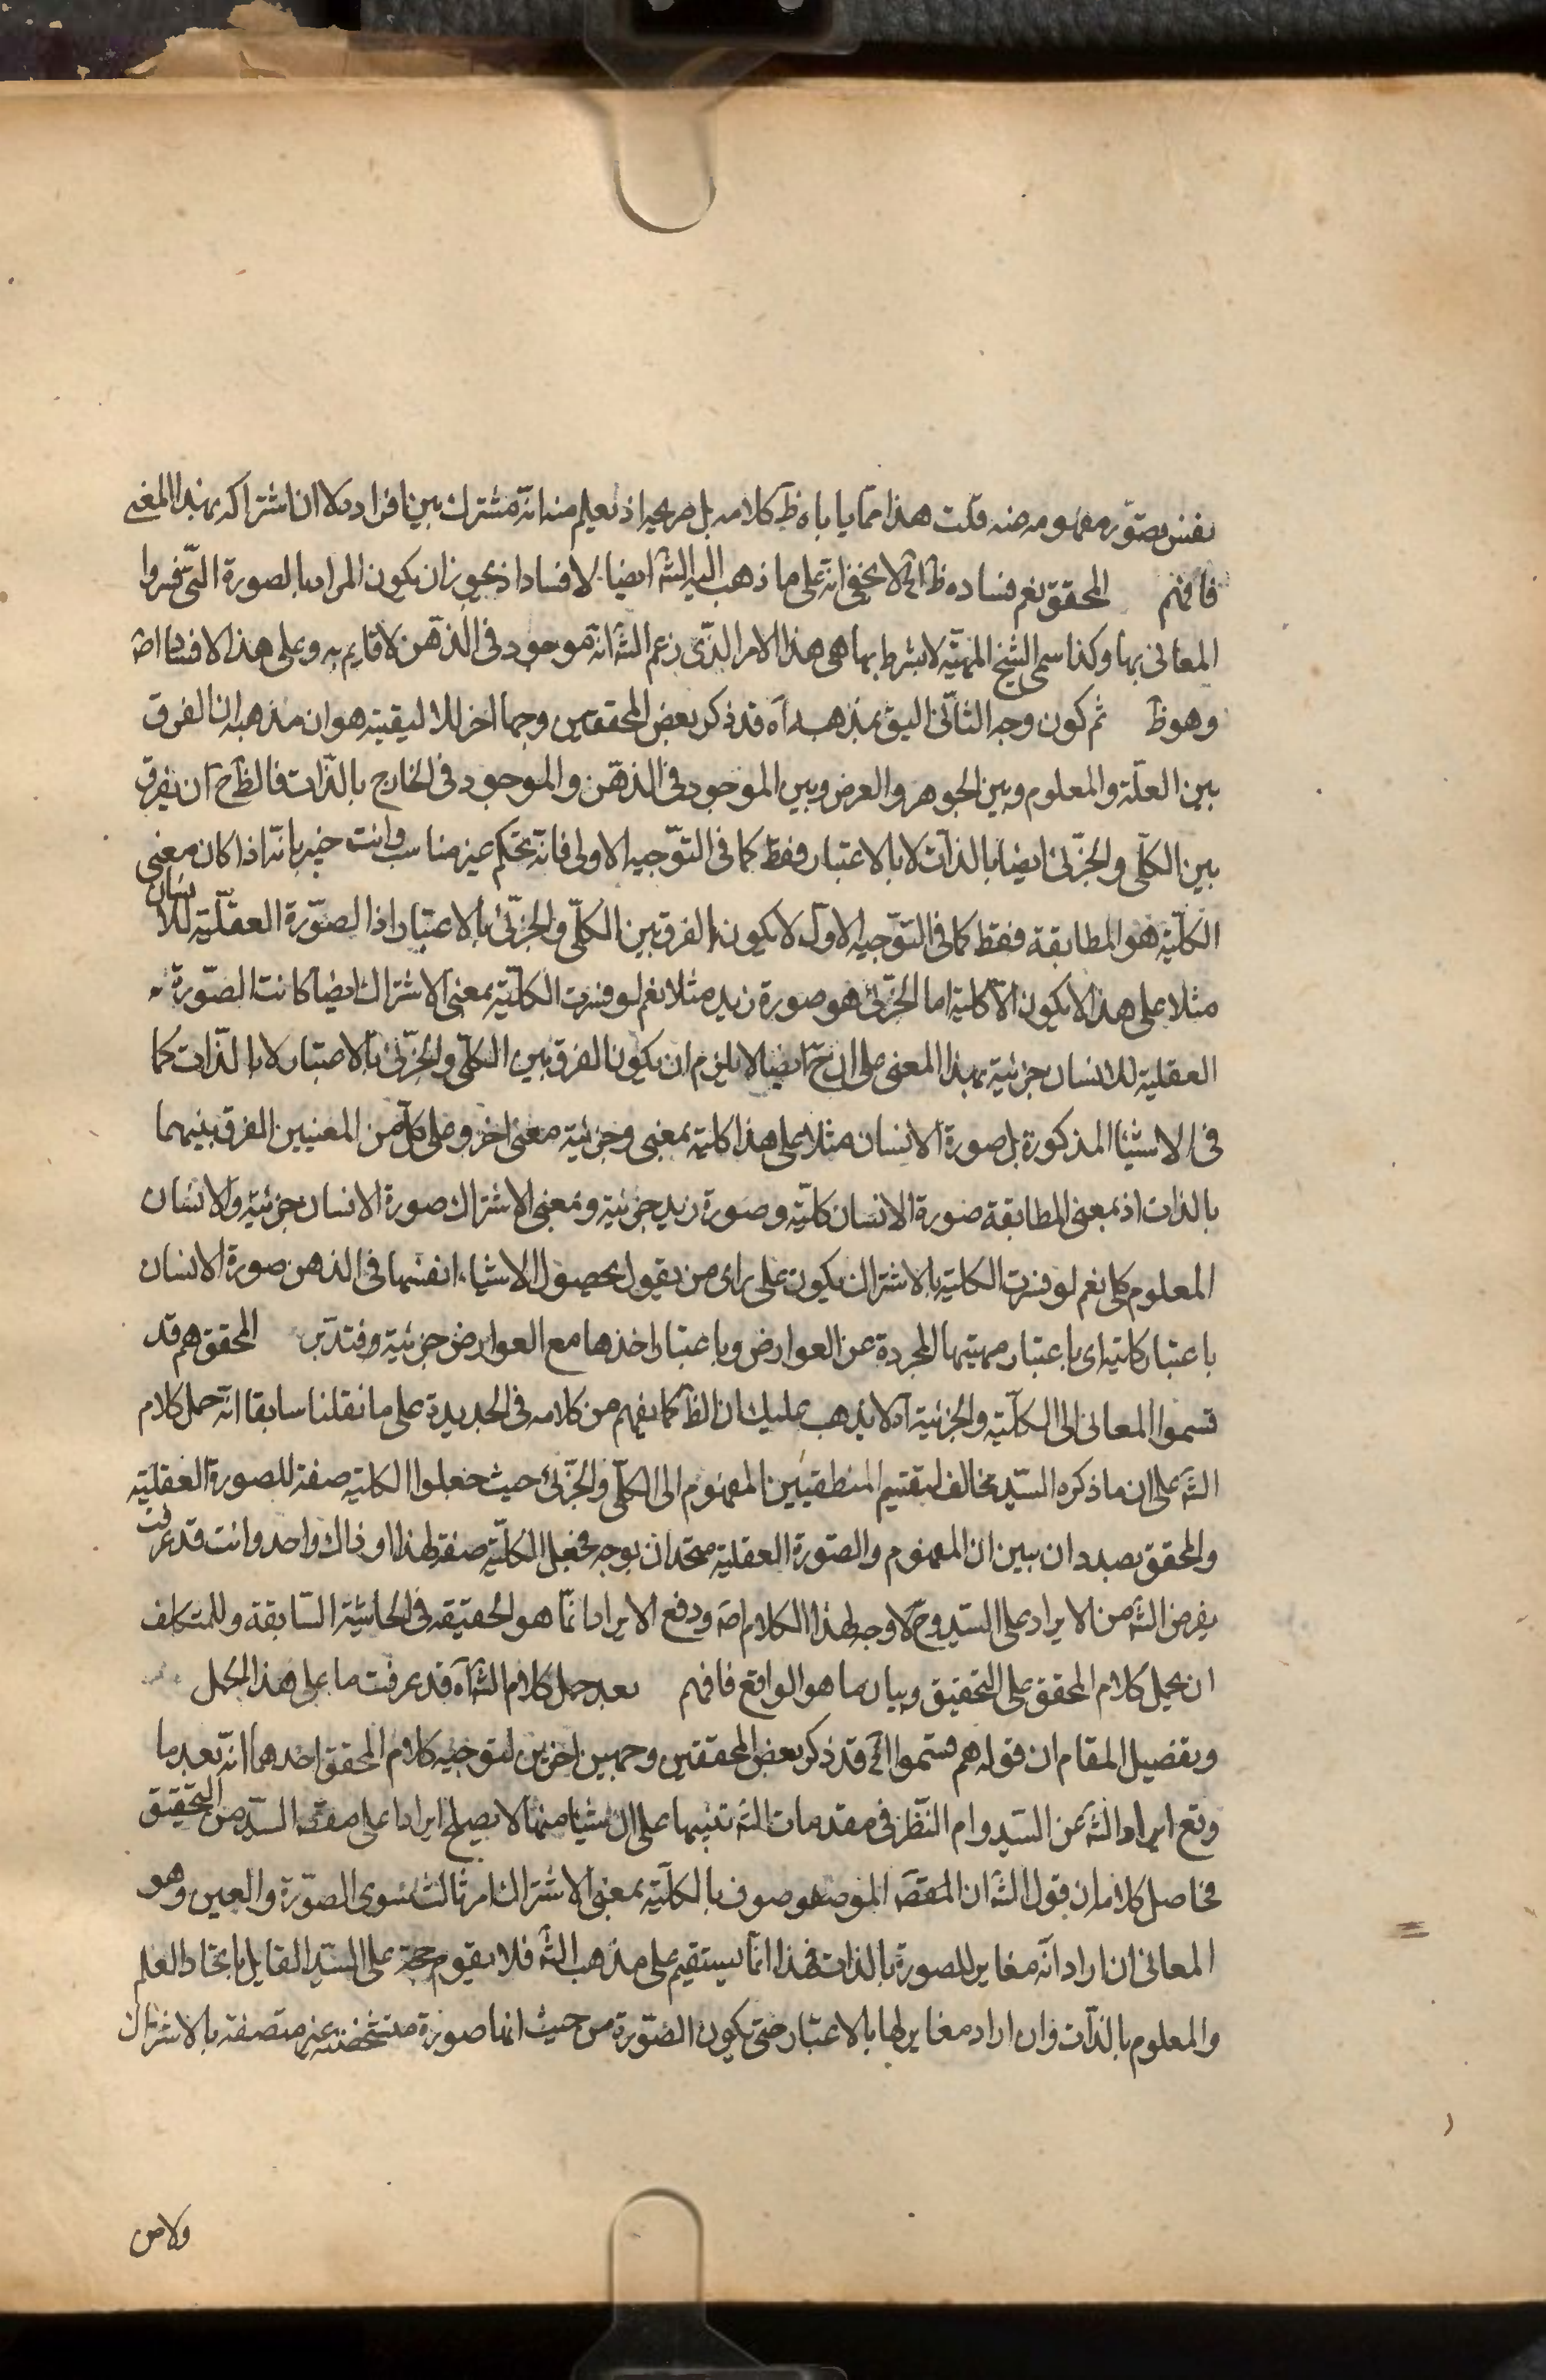 نفس تصوّر مفهومه منه قلت هذا مما ياباه ظ كلامه بل صريحه اذ يعلم منه انه مشترك بين افراده لا ان اشتراكه بهذا المعنى
فافهم المحقق نعم فساده ظ الخ لا يخفى انه على ما ذهب اليه الشه ايضا لا فساد اذ يجوز ان يكون المراد بالصورة التى فسروا
المعانى بها وكذا سمى الشيخ المهيّه لا بشرط بها هى هذا الامر الذى زعم الشه انه موجود فى الذهن لا قايم به وعلى هذا لا فساد اصه
وهو ظ ثم كون وجه الثانى اليق بمذهبه آه قد ذكر بعض المحققين وجها اخر للاليقيته هو ان مذهبه ان الفرق
بين العلّة والمعلوم وبين الجوهر والعرض وبين الموجود فى الذهن والموجود فى الخارج بالذّات فالظ ح ان يفرق
بين الكلّى والجزئى ايضا بالذات لا بالاعتبار فقط كما فى التوجيه الاولى فانه تحكم غير مناسب وانت خبير بانه اذا كان معنى
الكلّية هو المطابقة فقط كما فى التوجيه الاول لا يكون الفرق بين الكلّى والجزئى بالاعتبار اذ الصورة العقلّية للانسان
مثلا على هذا لا يكون الا كلية اما الجزئى هو صورة زيد مثلا نعم لو فسرت الكلّية بمعنى الاشتراك ايضا كانت الصورة
العقلية للانسان جزئية بهذا المعنى على ان ح ايضا لا يلزم ان يكون الفرق بين الكلى والجزئى بالاعتبار لا بالذّات كما
فى الاشيا المذكورة بل صورة الانسان مثلا على هذا كلية بمعنى وجزئية معنى اخر وعلى كل من المعنيين الفرق بينهما
بالذات اذ بمعنى المطابقة صورة الانسان كلّية وصورة زيد جزئية وبمعنى الاشتراك صورة الانسان جزئية والانسان
المعلوم كلى نعم لو فسرت الكلية بالاشتراك يكون على راى من يقول بحصول الاشياء انفسها فى الذهن صورة الانسان
باعتبار كلية اى باعتبار مهيتها المجردة عن العوارض وباعتبار اخذها مع العوارض جزئية فتدبّر المحقق هم قد
قسموا المعانى الى الكلّية والجزئية آه لا يذهب عليك ان الظ كما يفهم من كلامه فى الجديدة على ما نقلنا سابقا انه حمل كلام
الشه على ان ما ذكره السيّد مخالف لتقسيم المنطقيين المفهوم الى الكلّى والجزئى حيث جعلوا الكلية صفة للصورة العقلّية
والمحقق بصدد ان يبين ان المفهوم والصورة العقلية متحدان بوجه فجعل الكلّية صفة لهذا او ذاك واحد وانت قد عرفت
بغرض الشه من الايراد على السيد وح لا وجه لهذا الكلام اصه ودفع الايراد انّما هو الحقيقه فى الحاشية السّابقة وللمتكلف
ان يحمل كلام المحقق على التحقيق وبيان ما هو الواقع فافهم بعد حمل كلام الشه آه قد عرفت ما على هذا الحمل
وتفصيل المقام ان قوله هم قسموا الخ قد ذكر بعض المحققين وجهين اخرين لتوجيه كلام المحقق احدهما انه بعد ما
وقع ايراد الشه عن السيد وام النّظر فى مقدمات الشه تنبيها على ان شيئا منها لا يصلح ايرادا على مقصه السيّد من التحقيق
فحاصل كلامه ان قول الشه ان المقصه الموصوف بالكلّية بمعنى الاشتراك امر ثالث سوى الصورة والعين وهو
المعانى ان اراد انه مغاير للصورة بالذات فهذا انما يستقيم على مذهب الشه فلا يقوم حجة على السيّد القايل باتحاد العلم
والمعلوم بالذات وان اراد مغاير لها بالاعتبار حتى يكون الصّورة من حيث انها صورة متشخصة غير متصفة بالاشتراك
ولا من